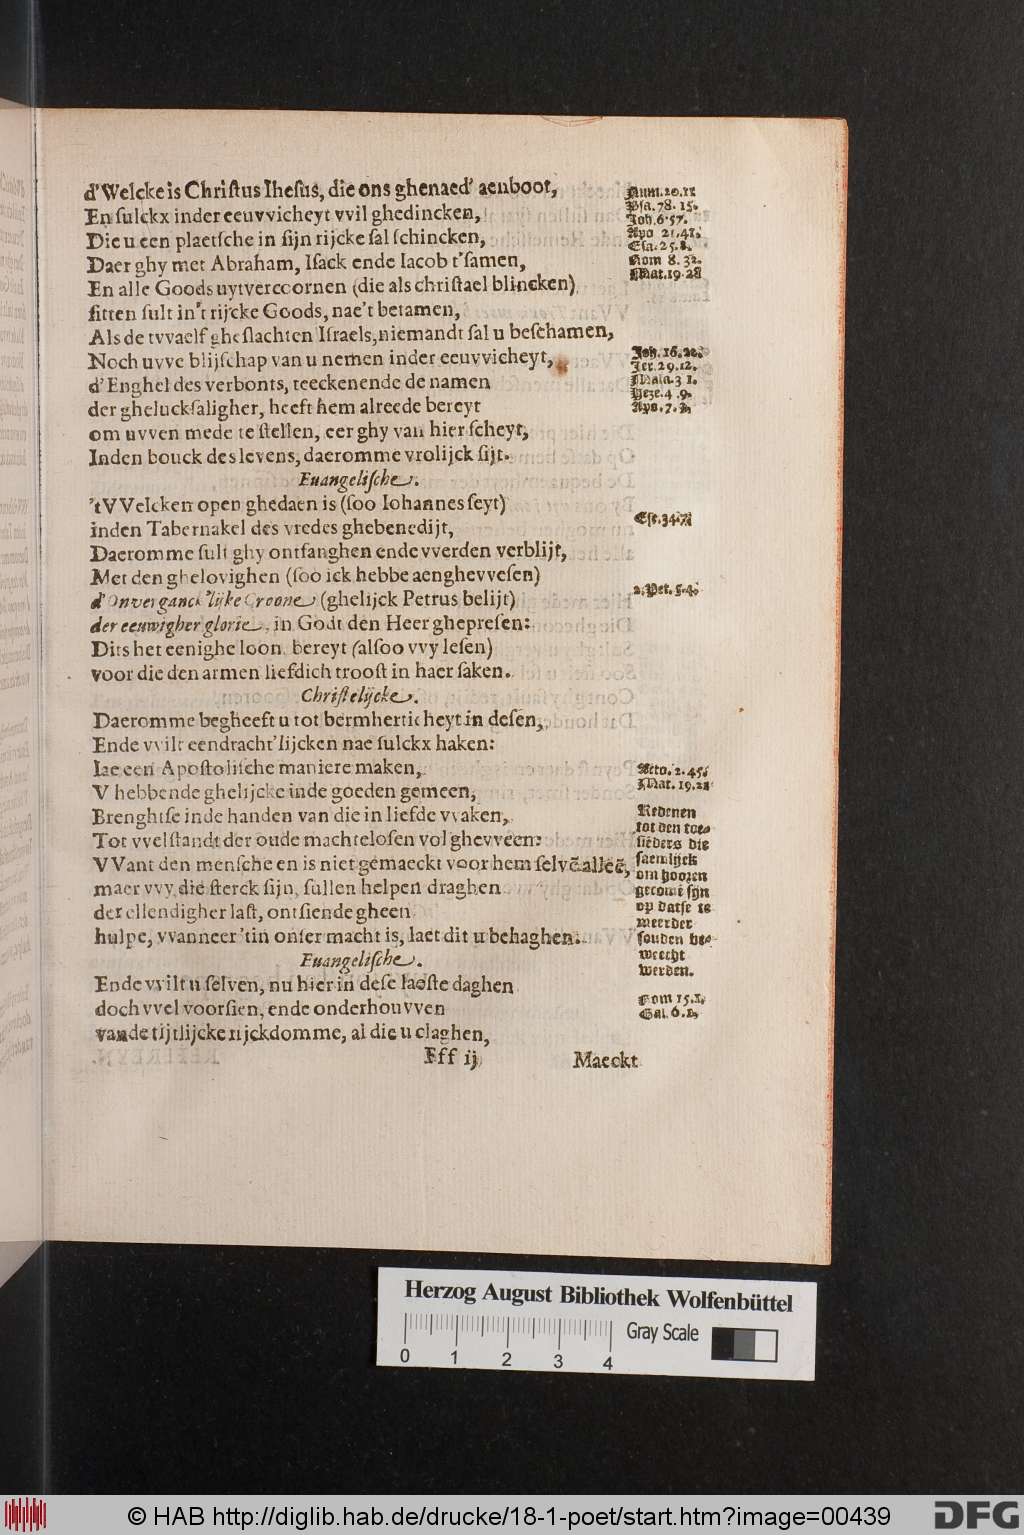 d'Welcke is Chriſtus Iheſus, die ons ghenaed' aenboot,
En ſulckx inder eeuvvicheyt vvil ghedincken,
Die u een plaetſche in ſijn rijcke ſal ſchincken,
Daer ghy met Abraham, Iſack ende Iacob t'ſamen,
En alle Goods uytvercoornen (die als chriſtael blincken)
ſitten ſult in't rijcke Goods, nae't betamen,
Als de tvvaelf gheſlachten Iſraels, niemandt ſal u beſchamen,
Noch uvve blijſchap van u nemen inder eeuvvicheyt,
d'Enghel des verbonts, teeckenende de namen
der gheluckſaligher, heeft hem alreede bereyt
om uvven mede te ſtellen, eer ghy van hier ſcheyt,
Inden bouck des levens, daeromme vrolijck ſijt.
Euangeliſche.
'tVVelcken open ghedaen is (ſoo Iohannes ſeyt)
inden Tabernakel des vredes ghebenedijt,
Daeromme ſult ghy ontfanghen ende vverden verblijt,
Met den ghelovighen (ſoo ick hebbe aenghevveſen)
d'Onverganck'lijke Croone (ghelijck Petrus belijt)
der eeuwigher glorie, in Godt den Heer ghepreſen:
Dits het eenighe loon, bereyt (alſoo vvy leſen)
voor die den armen liefdich trooſt in haer ſaken.
Chriſtelijcke.
Daeromme begheeft u tot bermherticheyt in deſen,
Ende vvilt eendracht'lijcken nae ſulckx haken:
Iae een Apoſtoliſche maniere maken,
V hebbende ghelijcke inde goeden gemeen,
Brenghtſe inde handen van die in liefde vvaken,
Tot vvelſtandt der oude machteloſen vol ghevveen:
VVant den menſche en is niet gemaeckt voor hem ſelvē alleē,
maer vvy die ſterck ſijn, ſullen helpen draghen
der ellendigher laſt, ontſiende gheen
hulpe, vvanneer 'tin onſer macht is, laet dit u behaghen:
Euangeliſche.
Ende vvilt u ſelven, nu hier in deſe laeſte daghen
doch vvel voorſien, ende onderhouvven
vande tijtlijcke rijckdomme, al die u claghen,
Fff ij
Maeckt
Num. 20. 11
Pſa. 78. 15.
Joh. 6. 57.
Apo 21. 41.
Eſa. 25. 8.
Rom 8. 32.
Mat. 19. 28
Joh. 16. 22.
Jer. 29. 12.
Mala. 3 1.
Heze. 4 . 9.
Apo. 7. 3.
Eſr. 34. 7.
2. Pet. 5. 4.
Acto. 2. 45.
Mat. 19. 21
Redenen
tot den toe-
ſieders die
ſaemlijck
om hooren
gecomē ſijn
op datſe te
meerder
ſouden be-
weecht
werden.
Rom 15. 1.
Gal. 6. 1.
Herzog August Bibliothek Wolfenbüttel
0 1 2 3 4
Gray Scale
© HAB http://diglib.hab.de/drucke/18-1-poet/start.htm?image=00439
DFG